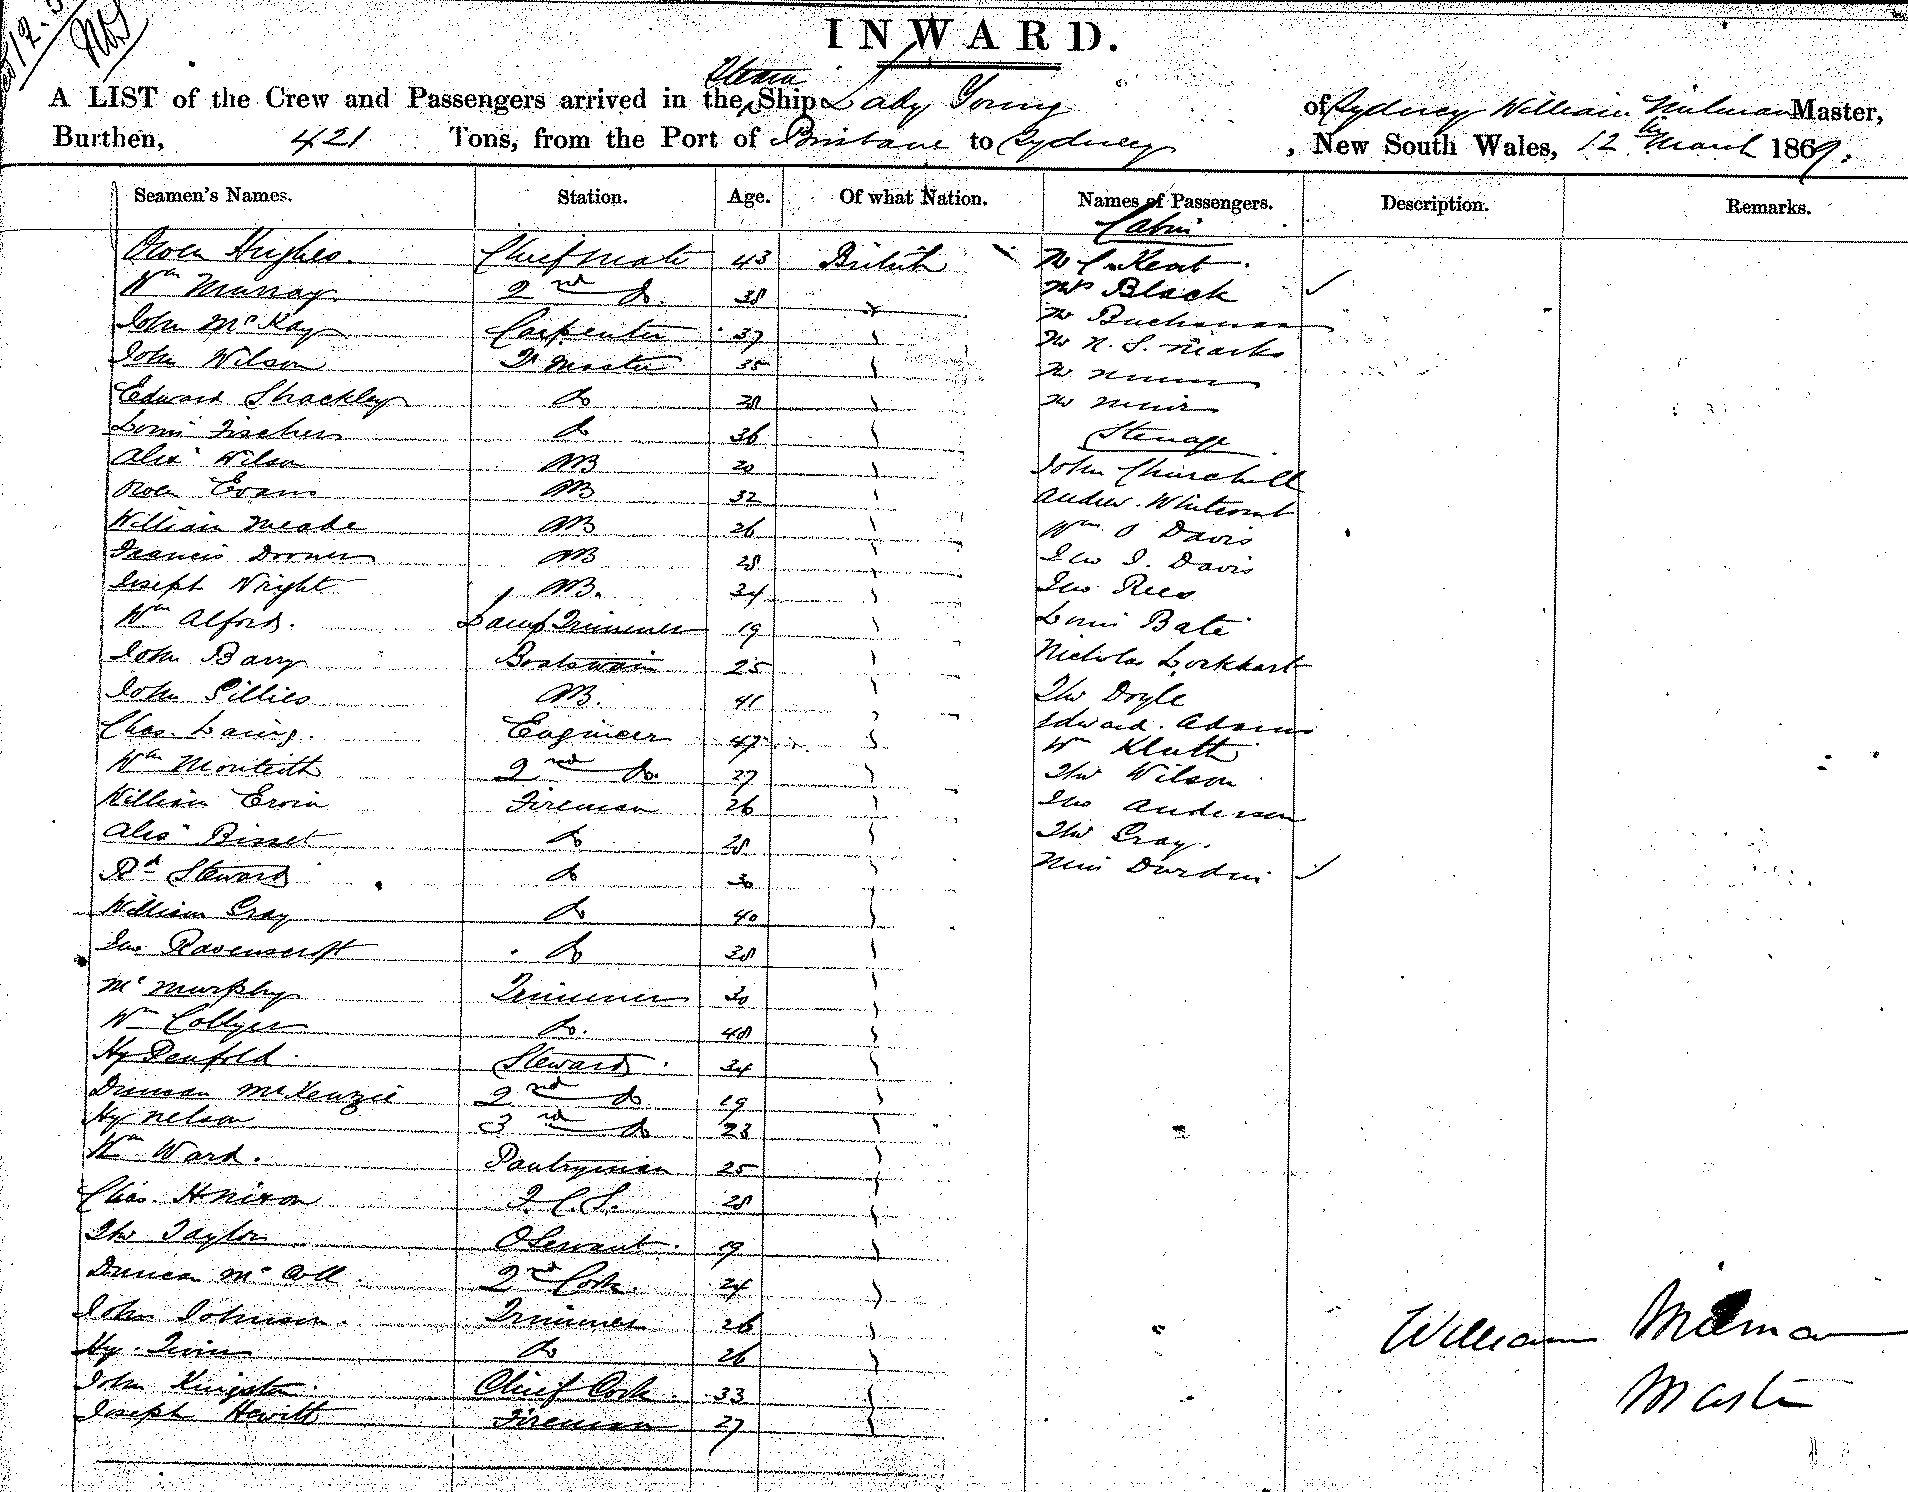 INWARD.
Steam
A LIST of the Crew and Passengers arrived in the Ship Lady Young of Sydney William Milman Master,
Burthen, 421 Tons, from the Port of Brisbane to Sydney, New South Wales, 12th March 1869.
Seamen's Names. Station. Age. Of what Nation. Names of Passengers. Description. Remarks.
Cabin
Owen Hughes. Chief Mate 43 British Kent
Wm Murray 2nd Do. 38 Mrs Black
John McKay Carpenter 37 Mr Buchanan
John Wilson Master 35 Mr Marks
Edward Shackley Do 28 Mr
Louis Fischer Do 36 Mr Muir
Steerage
Alexr Wilson AB 20 John Churchill
Owen Evans AB 32 Andrew Whitcomb
William Meade AB 26 Wm Davis
Francis AB 28 Davis
Joseph Wright AB. 24 Jno Rees
Wm Alford. Lamp Trimmer 19 Louis Bate
John Barry Boatswain 25 Nicholas Lockhart
John Gillies AB. 41 Thos Doyle
Chas. Laing. Engineer 47 Edward. Adams
Wm Monteith 2nd Do. 27 Wm Klutt
William Ervin Fireman 26 Thos Wilson
Alexr Bisset Do 28 Jno Anderson
Rd Steward Do 30 Thos Gray.
William Gray Do 40 Miss
Jno Ravenscroft Do 38
Murphy Trimmer 30
Wm Collyer Do. 48
Hy Penfold. Steward. 34
Duncan McKenzie 2nd Do 19
Hy Nelson 3rd Do 23
Wm Ward. Pantryman 25
Chas. H Nixon F. C. S. 28
Thos Taylor Servant. 19
Duncan McColl 2nd Cook. 24
John Johnson. Trimmer 26
Hy. Do 26
John Kingston. Chief Cook. 33
Joseph Hewitt Fireman 27
William Milman
Master